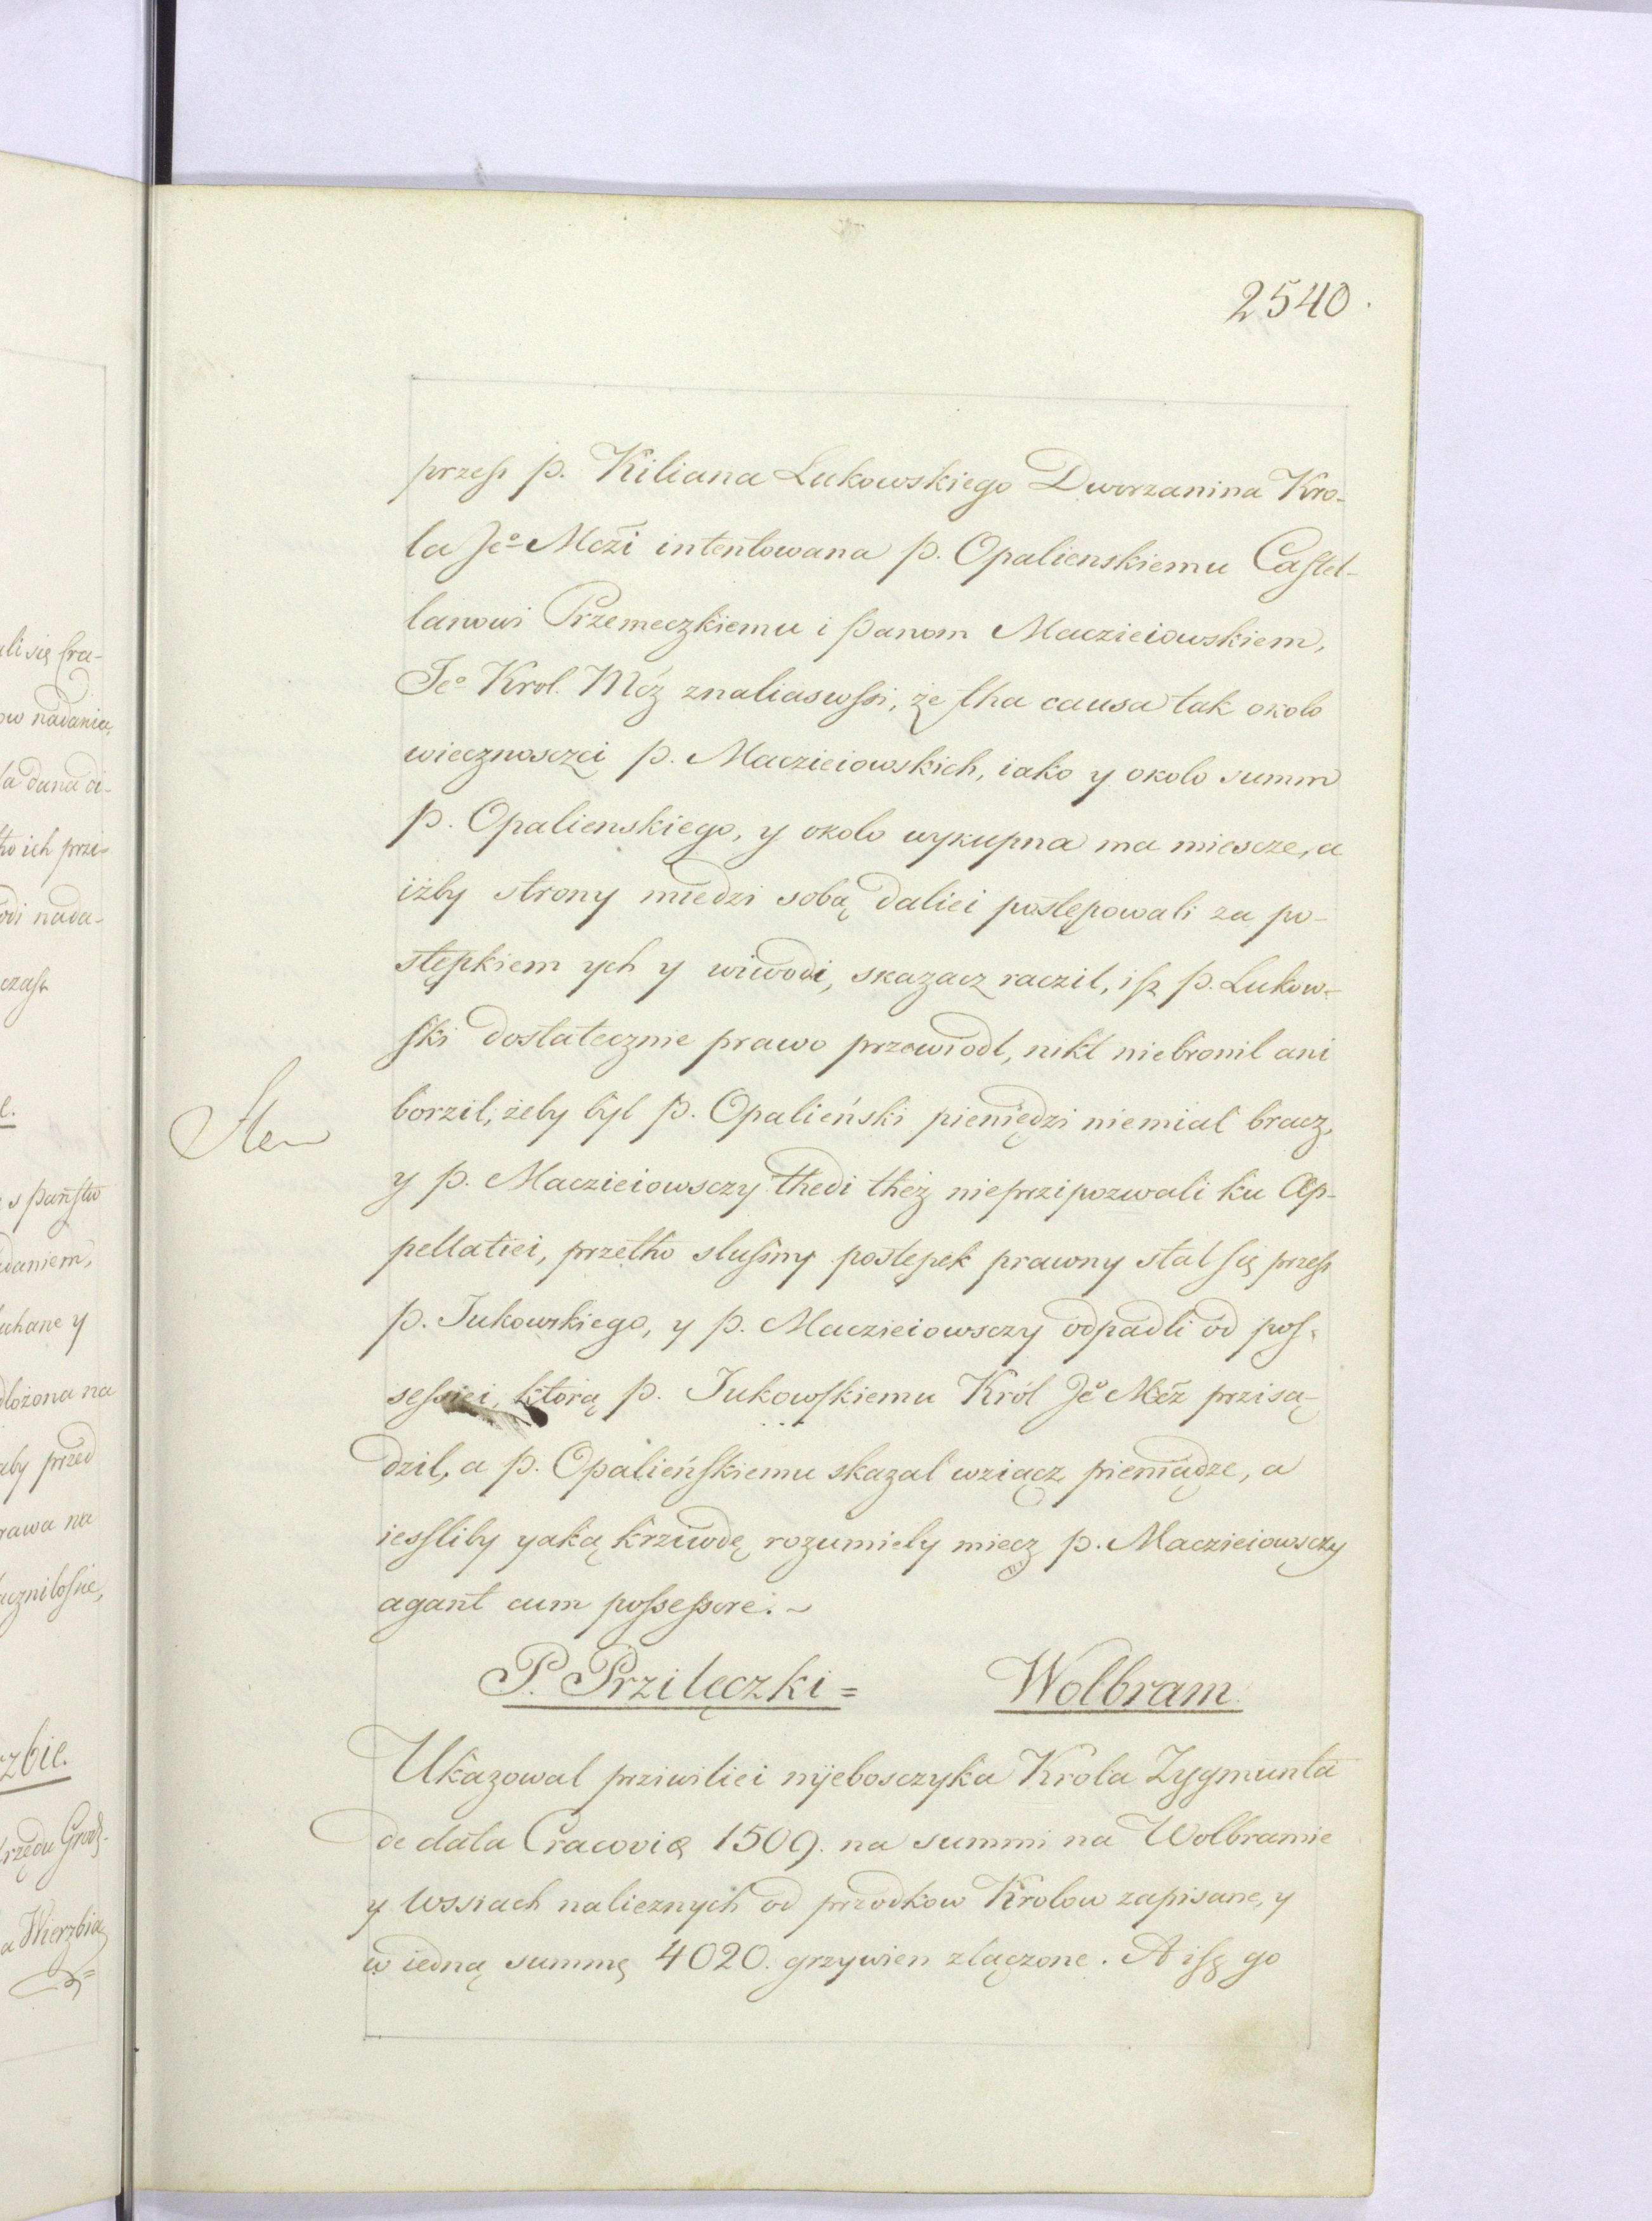 2540.
przeſs p. Kiliana Lukowskiego Dworzanina Kro-
la Jeº Mczi intentowana p. Opalienskiemu Caſtel-
lanowi Przemeczkiemu i panom Maczieiowskiem,
Jeº Krol. Mcz znaliaswſsi, że tha causa tak okolo
wiecznosczi p. Maczieiowskich, iako y okolo summ
p. Opalienskiego, y okolo wykupna ma miescze, a
iżby strony miedzi sobą daliei postępowali za po-
stępkiem ych y wiwodi, skazacz raczil, iſz p. Lukow-
ſki dostatecznie prawo przewiodl, nikt niebronil ani
borzil, żeby byl p. Opalieński pieniędzi niemial bracz,
y p. Maczieiowsczy thedi theż nieprzipozwali ku Ap-
pellatiei, przetho sluſsny postępek prawny stal ſię przeſs
p. Jukowskiego, y p. Maczieiowsczy odpadli od poſ-
seſsiei, ktorą p. Jukowſkiemu Król Jeº Mcż przisą-
dzil, a p. Opalieńſkiemu skazal wziącz pieniądze, a
iesſliby yaką krziwdę rozumiely miecz p. Maczieiowsczy
agant cum poſseſsore. ~
Item
P. Przilęczki =
Wolbram.
Ukazowal prziwiliei nijebosczyka Krola Zygmunta
de data Cracovię 1509. na summi na Wolbramie
y wssiach naliecznych od przodkow Krolow zapisane, y
w iedną summę 4020. grzywien zlączone. A iſz go
ali się ſra-
ow nadania,
la dana di-
ho ich przi-
odi nada-
czaſs
e.
s pańſtw
daniem,
uhane y
dlożona na
aby przed
rawa na
aczniloſie,
rzbie.
rzędu Grodz-
a Wierzbią